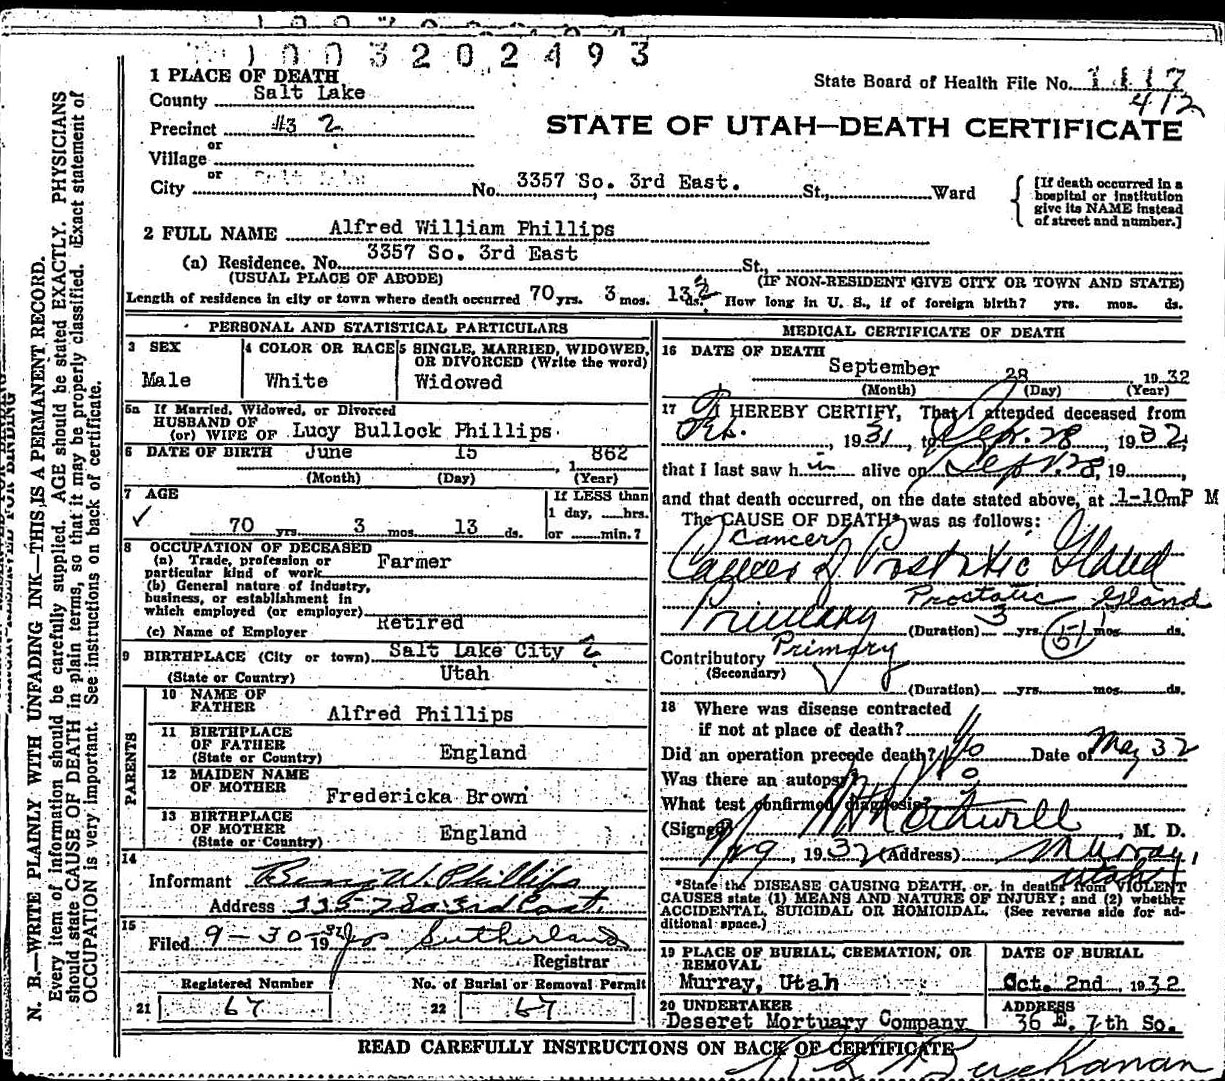 1003202493
1 PLACE OF DEATH
State Board of Health File No. 1117
412
County Salt Lake
Precinct #3 2
STATE OF UTAH—DEATH CERTIFICATE
or
Village
or
City No. 3357 So. 3rd East. St., Ward
[If death occurred in a hospital or institution give its NAME instead of street and number.]
2 FULL NAME Alfred William Phillips
(a) Residence. No. 3357 So. 3rd East St.,
(USUAL PLACE OF ABODE) (IF NON-RESIDENT GIVE CITY OR TOWN AND STATE)
Length of residence in city or town where death occurred 70 yrs. 3 mos. 13 ds. How long in U. S., if of foreign birth? yrs. mos. ds.
PERSONAL AND STATISTICAL PARTICULARS
3 SEX
Male
4 COLOR OR RACE
White
5 SINGLE, MARRIED, WIDOWED, OR DIVORCED (Write the word)
Widowed
5a If Married, Widowed, or Divorced
HUSBAND OF
(or) WIFE OF Lucy Bullock Phillips
6 DATE OF BIRTH June 15, 1862
(Month) (Day) (Year)
7 AGE
70 yrs. 3 mos. 13 ds.
If LESS than
1 day, hrs.
or min.?
8 OCCUPATION OF DECEASED
(a) Trade, profession or
particular kind of work Farmer
(b) General nature of industry,
business, or establishment in
which employed (or employer) Retired
(c) Name of Employer
9 BIRTHPLACE (City or town) Salt Lake City 2
(State or Country) Utah
PARENTS
10 NAME OF FATHER
Alfred Phillips
11 BIRTHPLACE OF FATHER
(State or Country) England
12 MAIDEN NAME OF MOTHER
Fredericka Brown
13 BIRTHPLACE OF MOTHER
(State or Country) England
14
Informant Benj W. Phillips
Address 3357 So 3rd East.
15
Filed 9-30 1932 Jos Sutherland
Registrar
Registered Number
21 67
No. of Burial or Removal Permit
22 67
MEDICAL CERTIFICATE OF DEATH
16 DATE OF DEATH
September 28 1932
(Month) (Day) (Year)
17 I HEREBY CERTIFY, That I attended deceased from
, 1931, to Sep. 28, 1932,
that I last saw h im alive on Sept 28, 19
and that death occurred, on the date stated above, at 1-10m P M
The CAUSE OF DEATH* was as follows:
Cancer
Cancer of Prostatic Gland
Prostatic Gland
Primary
(Duration) 3 yrs. mos. ds.
51
Contributory Primary
(Secondary)
(Duration) yrs. mos. ds.
18 Where was disease contracted
if not at place of death?
Did an operation precede death? No Date of May 32
Was there an autopsy? No
What test confirmed diagnosis?
(Signed) , M. D.
, 1932 (Address) Murray,
Utah
*State the DISEASE CAUSING DEATH, or, in deaths from VIOLENT
CAUSES state (1) MEANS AND NATURE OF INJURY; and (2) whether
ACCIDENTAL, SUICIDAL OR HOMICIDAL. (See reverse side for ad-
ditional space.)
19 PLACE OF BURIAL, CREMATION, OR REMOVAL
Murray, Utah
DATE OF BURIAL
Oct. 2nd, 1932
20 UNDERTAKER
Deseret Mortuary Company
ADDRESS
36 E. 7th So.
READ CAREFULLY INSTRUCTIONS ON BACK OF CERTIFICATE
Buchanan
N. B.—WRITE PLAINLY WITH UNFADING INK—THIS IS A PERMANENT RECORD.
Every item of information should be carefully supplied. AGE should be stated EXACTLY. PHYSICIANS
should state CAUSE OF DEATH in plain terms, so that it may be properly classified. Exact statement of
OCCUPATION is very important. See instructions on back of certificate.